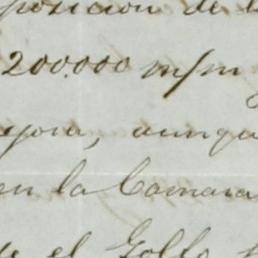 posicion de l
200.000 m/m
yora, aunqu
en la Camara
e el Golfo